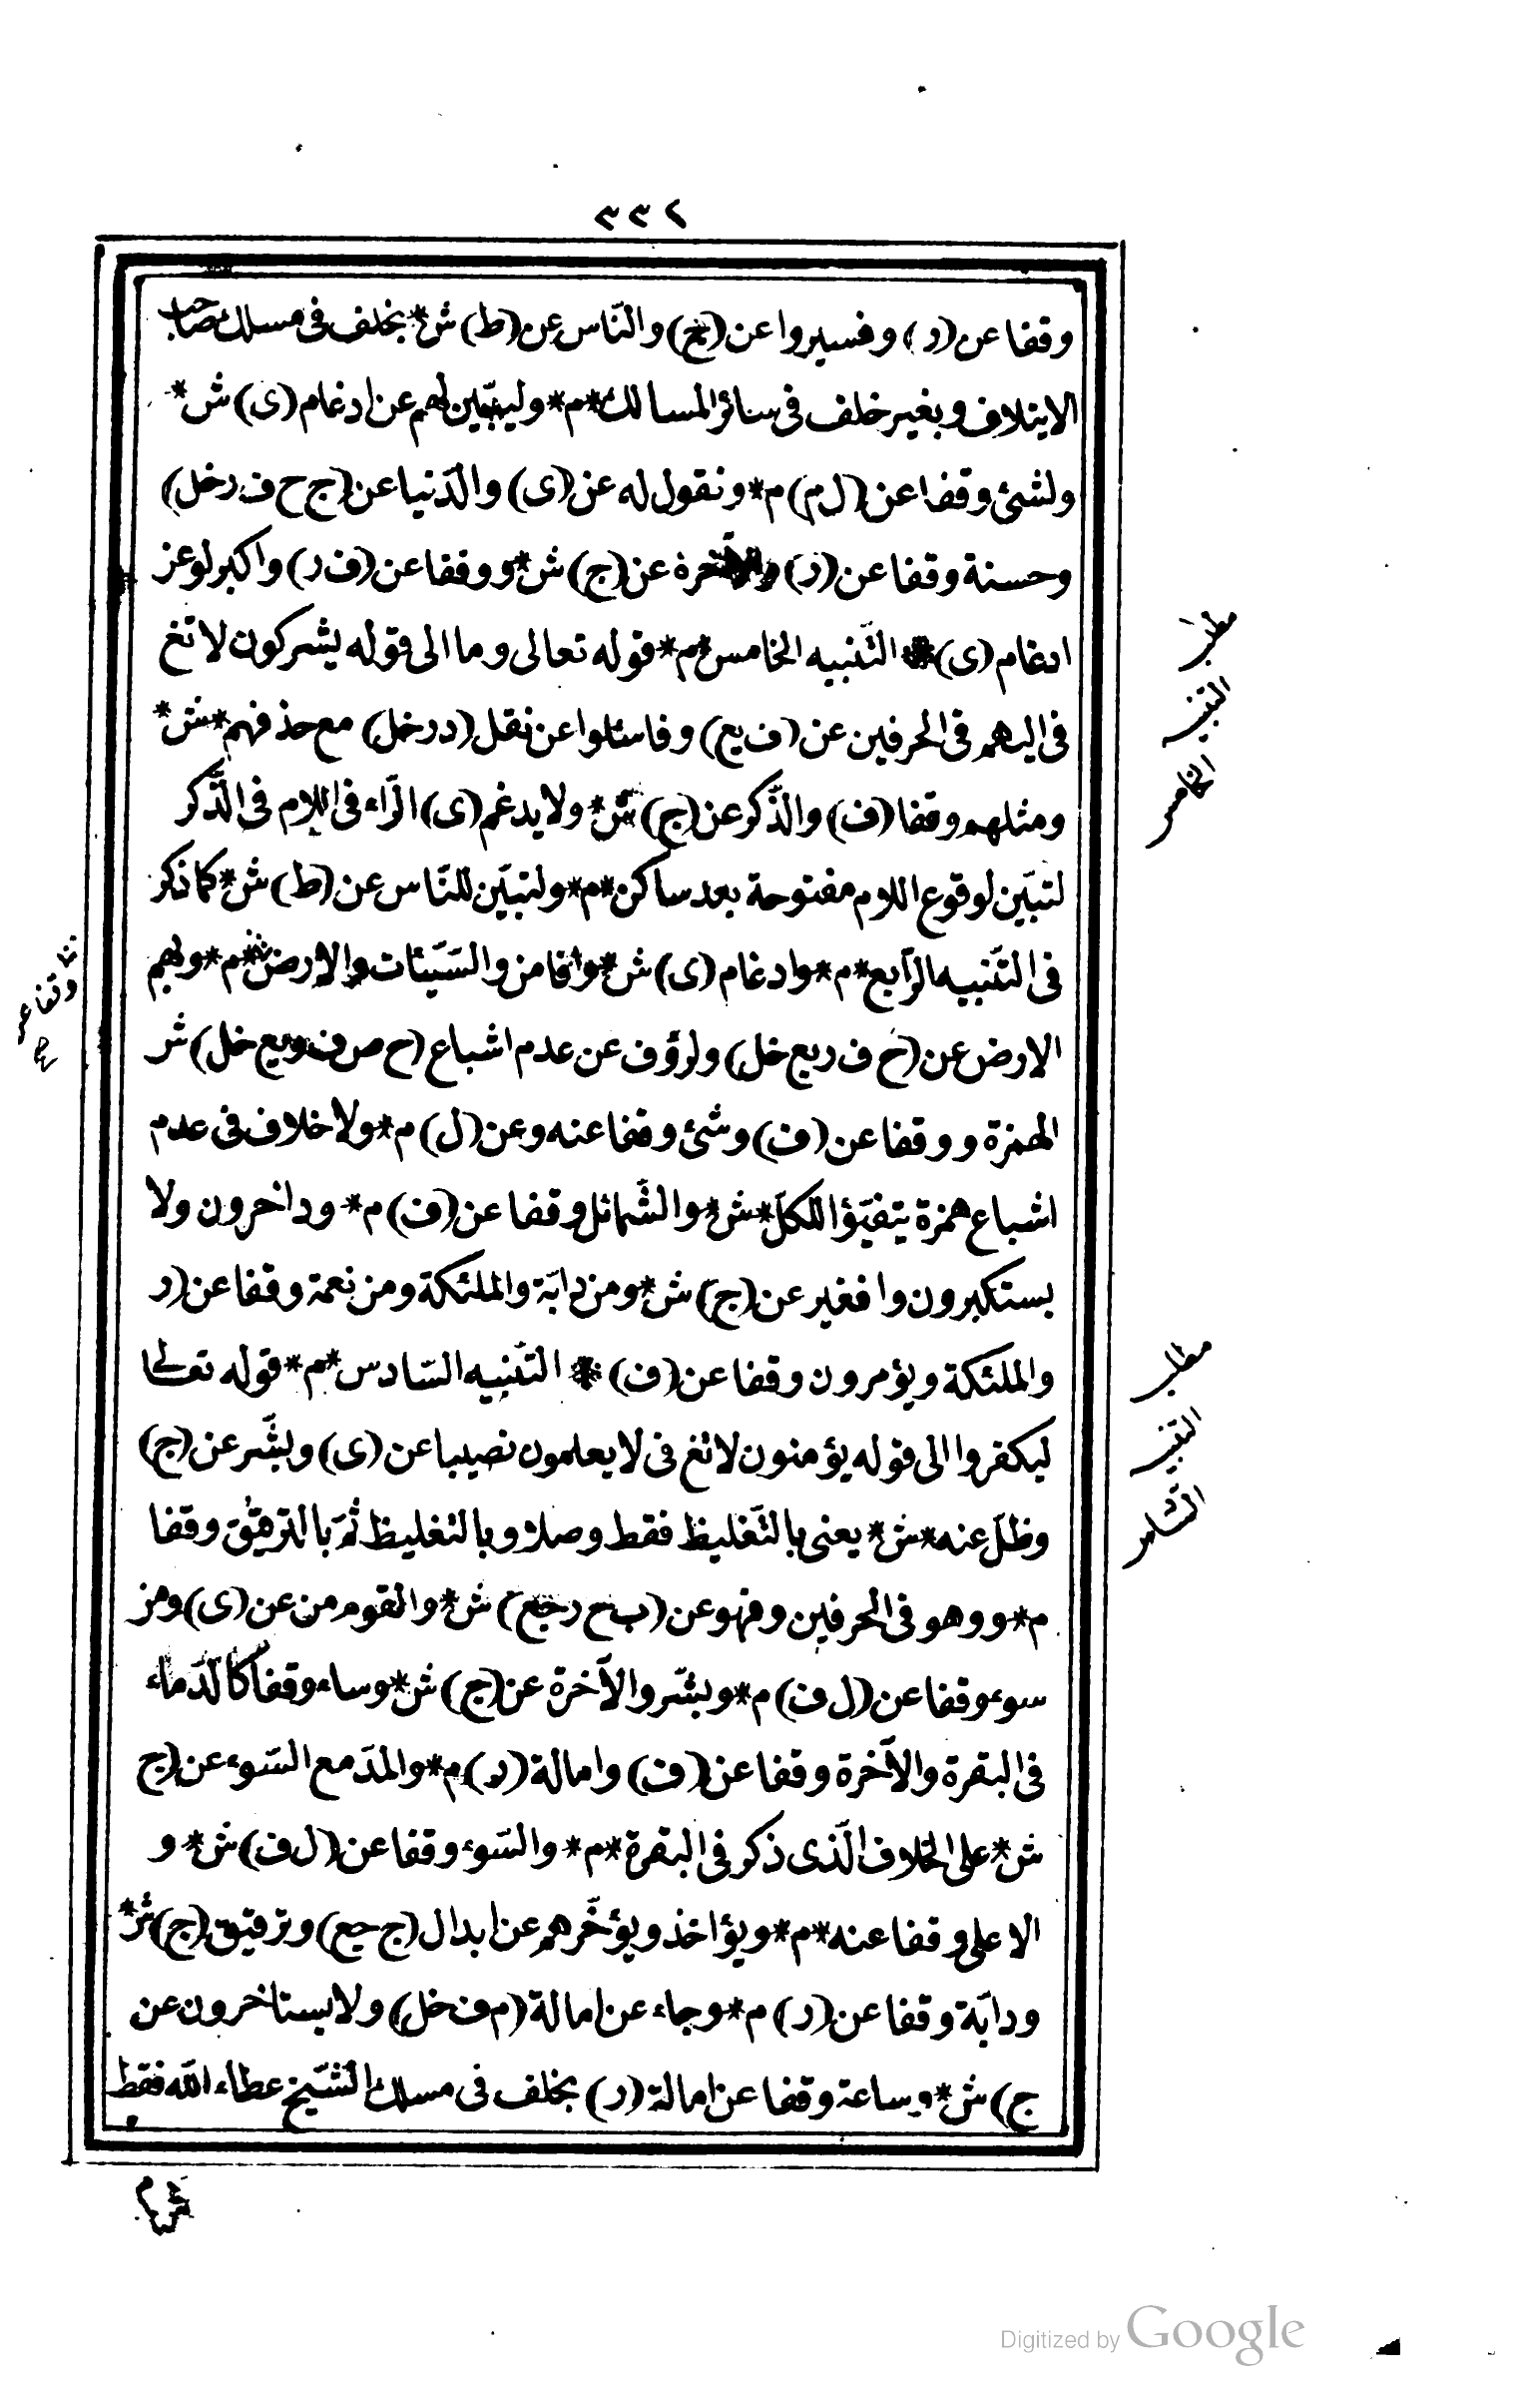 ٢٣٣
وقفا عن (د) وفسيروا عن (ج) والنّاس عن (ط) ش* بخلف فى مسلك صاحب
الايتلاف وبغير خلف فى سائر المسالك *م* وليبيّن لهم عن ادغام (ى) ش*
ولشئ وقفا عن (ل م) م* ونقول له عن (ى) والدّنيا عن (ج ح ف ر خل)
وحسنة وقفا عن (ر) والآخرة عن (ج) ش* ووقفا عن (ف ر) واكبر لو عن
ادغام (ى) * التّنبيه الخامس *م* قوله تعالى وما الى قوله يشركون لا تغ
فى اليهم فى الحرفين عن (ف يع) وفاسئلوا عن نقل (د ر خل) مع حذفهم *ش*
ومثلهم وقفا (ف) والذّكر عن (ج) ش* ولا يدغم (ى) الرّاء فى اللام فى الذّكر
لتبيّن لوقوع اللام مفتوحة بعد ساكن *م* ولتبيّن للنّاس عن (ط) ش* كما ذكر
فى التّنبيه الرّابع *م* وادغام (ى) ش* وافامن والسّيّئات والارض *م* وبهم
الارض عن (ح ف ر يع خل) ولرؤف عن عدم اشباع (ح ص ف ويع خل) ش
الهمزة ووقفا عن (ف) وشئ وقفا عنه وعن (ل) م* ولا خلاف فى عدم
اشباع همزة يتفيّؤا للكلّ *ش* والشّمائل وقفا عن (ف) م* وداخرون ولا
يستكبرون وافغير عن (ج) ش* ومن دابّة والملئكة ومن نعمة وقفا عن (ر
والملئكة ويؤمرون وقفا عن (ف) * التّنبيه السّادس *م* قوله تعالى
ليكفروا الى قوله يؤمنون لا تغ فى لا يعلمون نصيبا عن (ى) وبشّر عن (ج)
وظلّ عنه *ش* يعنى بالتّغليظ فقط وصلا وبالتغليظ ثمّ بالترقيق وقفا
م* ووهو فى الحرفين وفهو عن (ب ح ر جع) ش* والقوم من عن (ى) ومن
سوء وقفا عن (ل ف) م* وبشّر والآخرة عن (ج) ش* وساء وقفا كالدّماء
فى البقرة والآخرة وقفا عن (ف) وامالة (ر) م* والمدّ مع السّوء عن (ج
ش* على الخلاف الّذى ذكر فى البقرة *م* والسّوء وقفا عن (ل ف) ش* و
الاعلى وقفا عنه *م* ويؤاخذ ويؤخّرهم عن ابدال (ج جع) وترقيق (ج) ش*
ودابّة وقفا عن (ر) م* وجاء عن امالة (م ف خل) ولا يستاخرون عن
ج) ش* وساعة وقفا عن امالة (ر) بخلف فى مسلك الشّيخ عطاء اللّه فقط
مطلب
التنبيه
الخامس
وقفا عن
ج
مطلب
التنبيه
السّادس
Digitized by Google